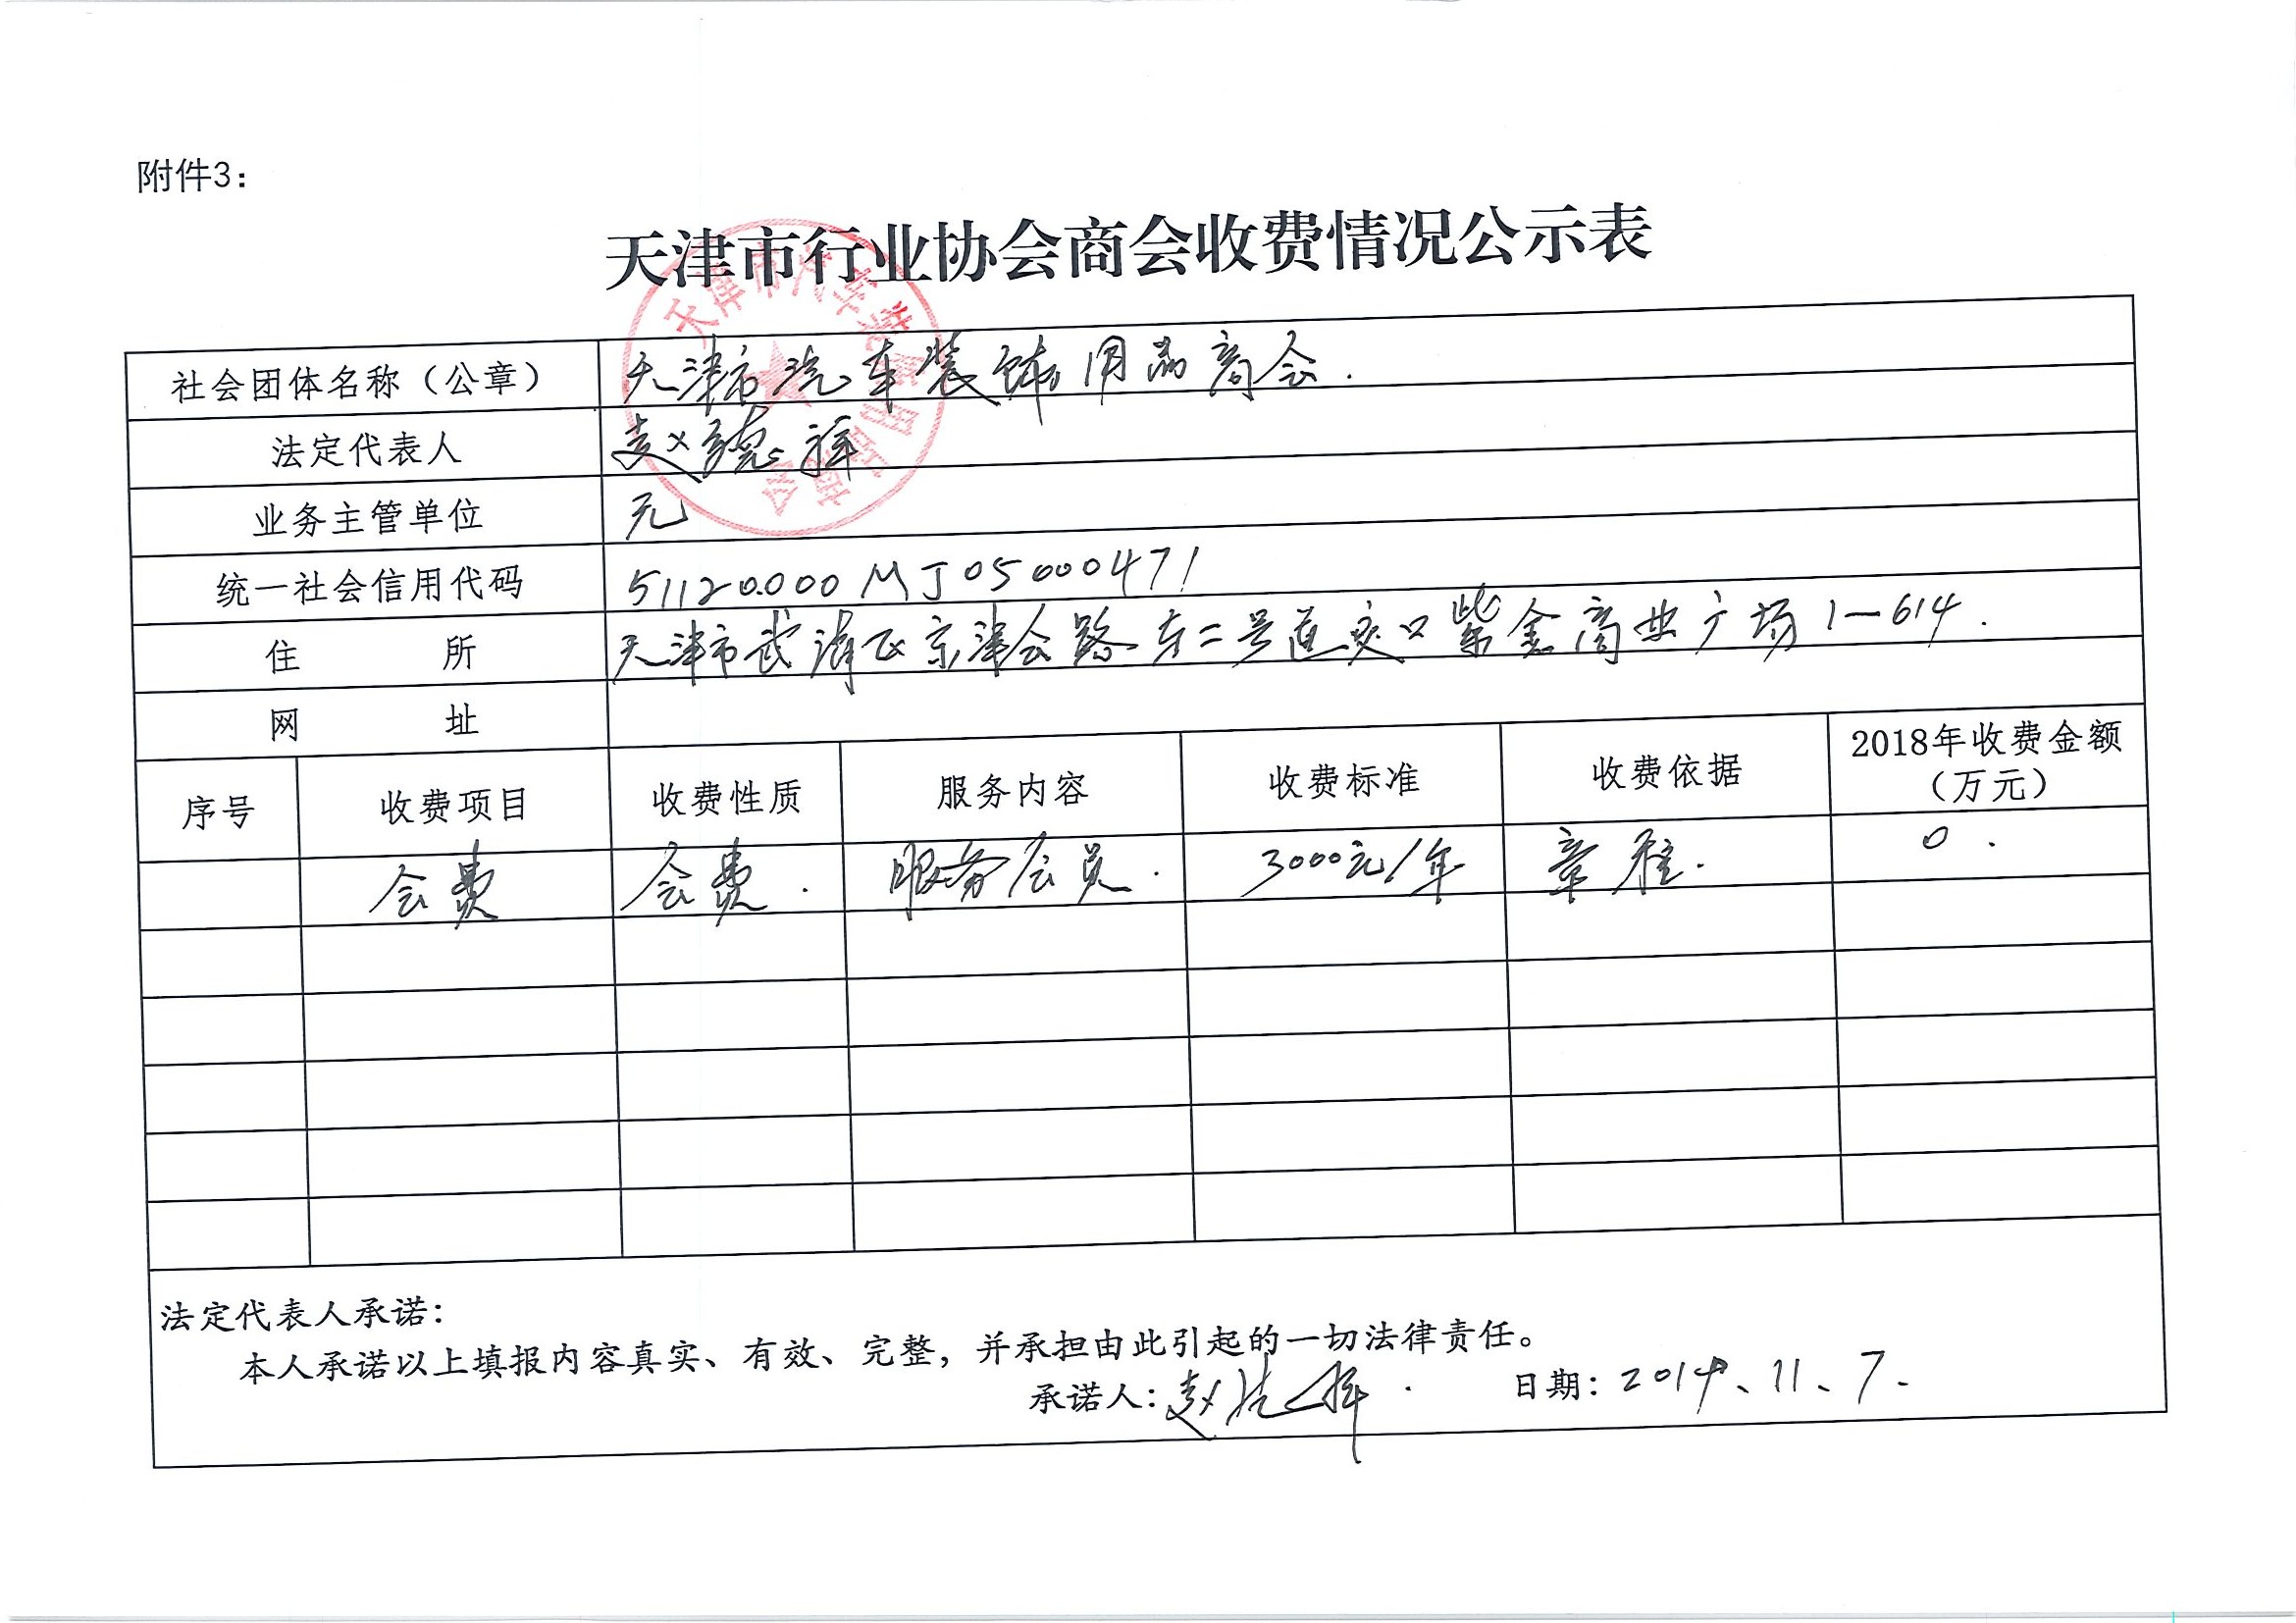 附件3：
天津市行业协会商会收费情况公示表
社会团体名称（公章） 天津市汽车装饰用品商会.
法定代表人 赵德祥
业务主管单位 无
统一社会信用代码 51120000MJ05000471
住 所 天津市武清区京津公路东二号道交口紫金商业广场1-614.
网 址
序号 收费项目 收费性质 服务内容 收费标准 收费依据 2018年收费金额（万元）
会费 会费. 服务会员. 3000元/年 章程. 0.
法定代表人承诺：
本人承诺以上填报内容真实、有效、完整，并承担由此引起的一切法律责任。
承诺人：赵 祥. 日期：2019、11、7.